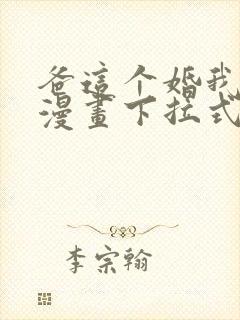 爸這个婚我
漫畫下拉式
李宗翰